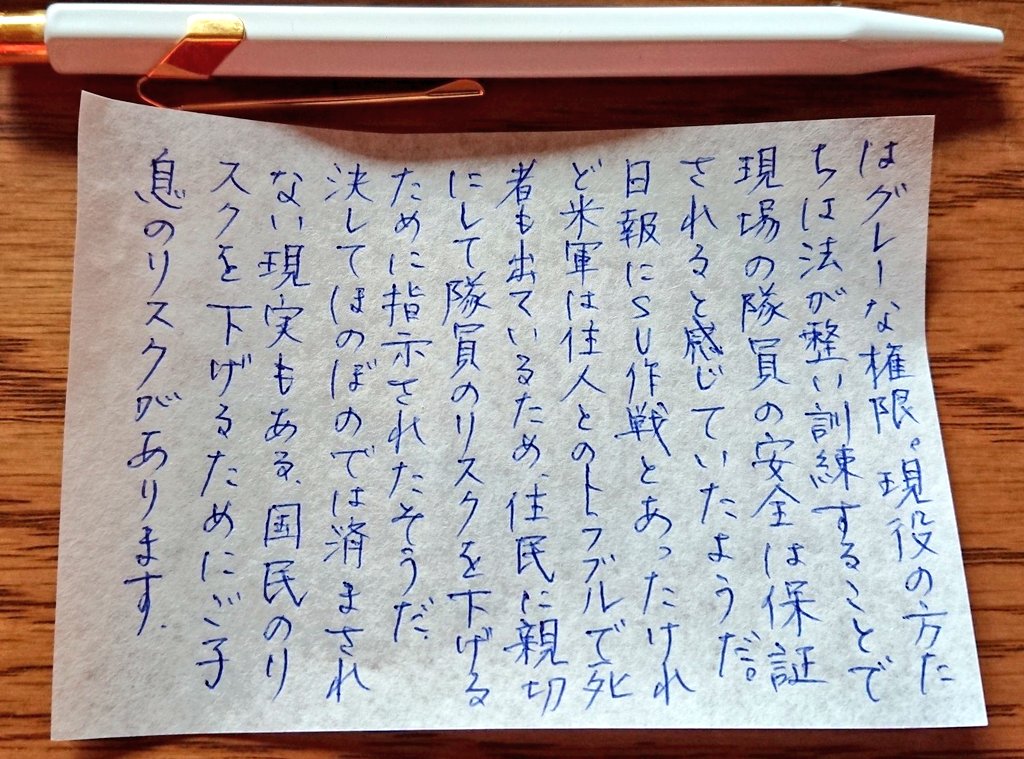 はグレーな権限。現役の方た
ちは法が整い訓練することで
現場の隊員の安全は保証
されると感じていたようだ。
日報にSU作戦とあったけれ
ど米軍は住人とのトラブルで死
者も出ているため、住民に親切
にして隊員のリスクを下げる
ために指示されたそうだ、
決してほのぼのでは済まされ
ない現実もある、国民のリ
スクを下げるためにご子
息のリスクがあります、